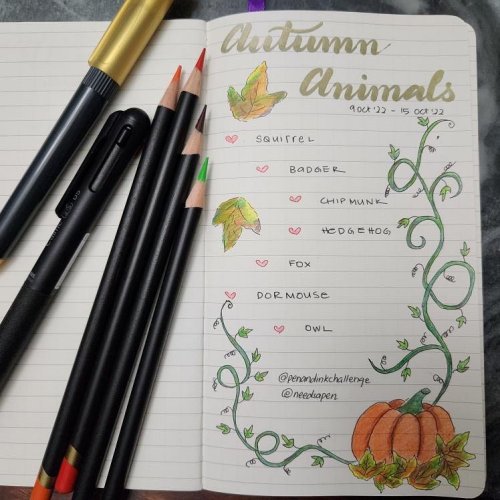 Autumn
Animals
9 Oct '22 - 15 Oct '22
SQUIRREL
BADGER
CHIPMUNK
HEDGEHOG
FOX
DORMOUSE
OWL
@penandinkchallenge
@needsapen